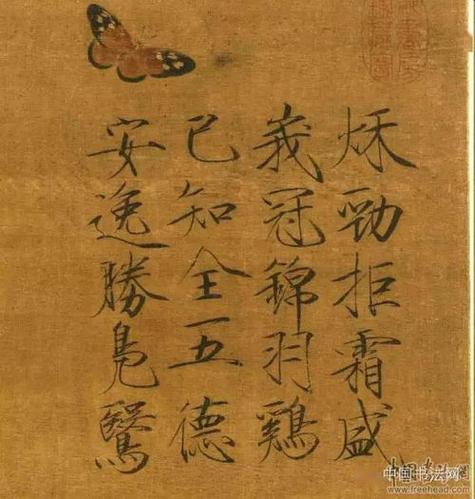 秋勁拒霜盛
峩冠錦羽鷄
已知全五德
安逸勝鳧鷖
中国书法网
www.freehead.com